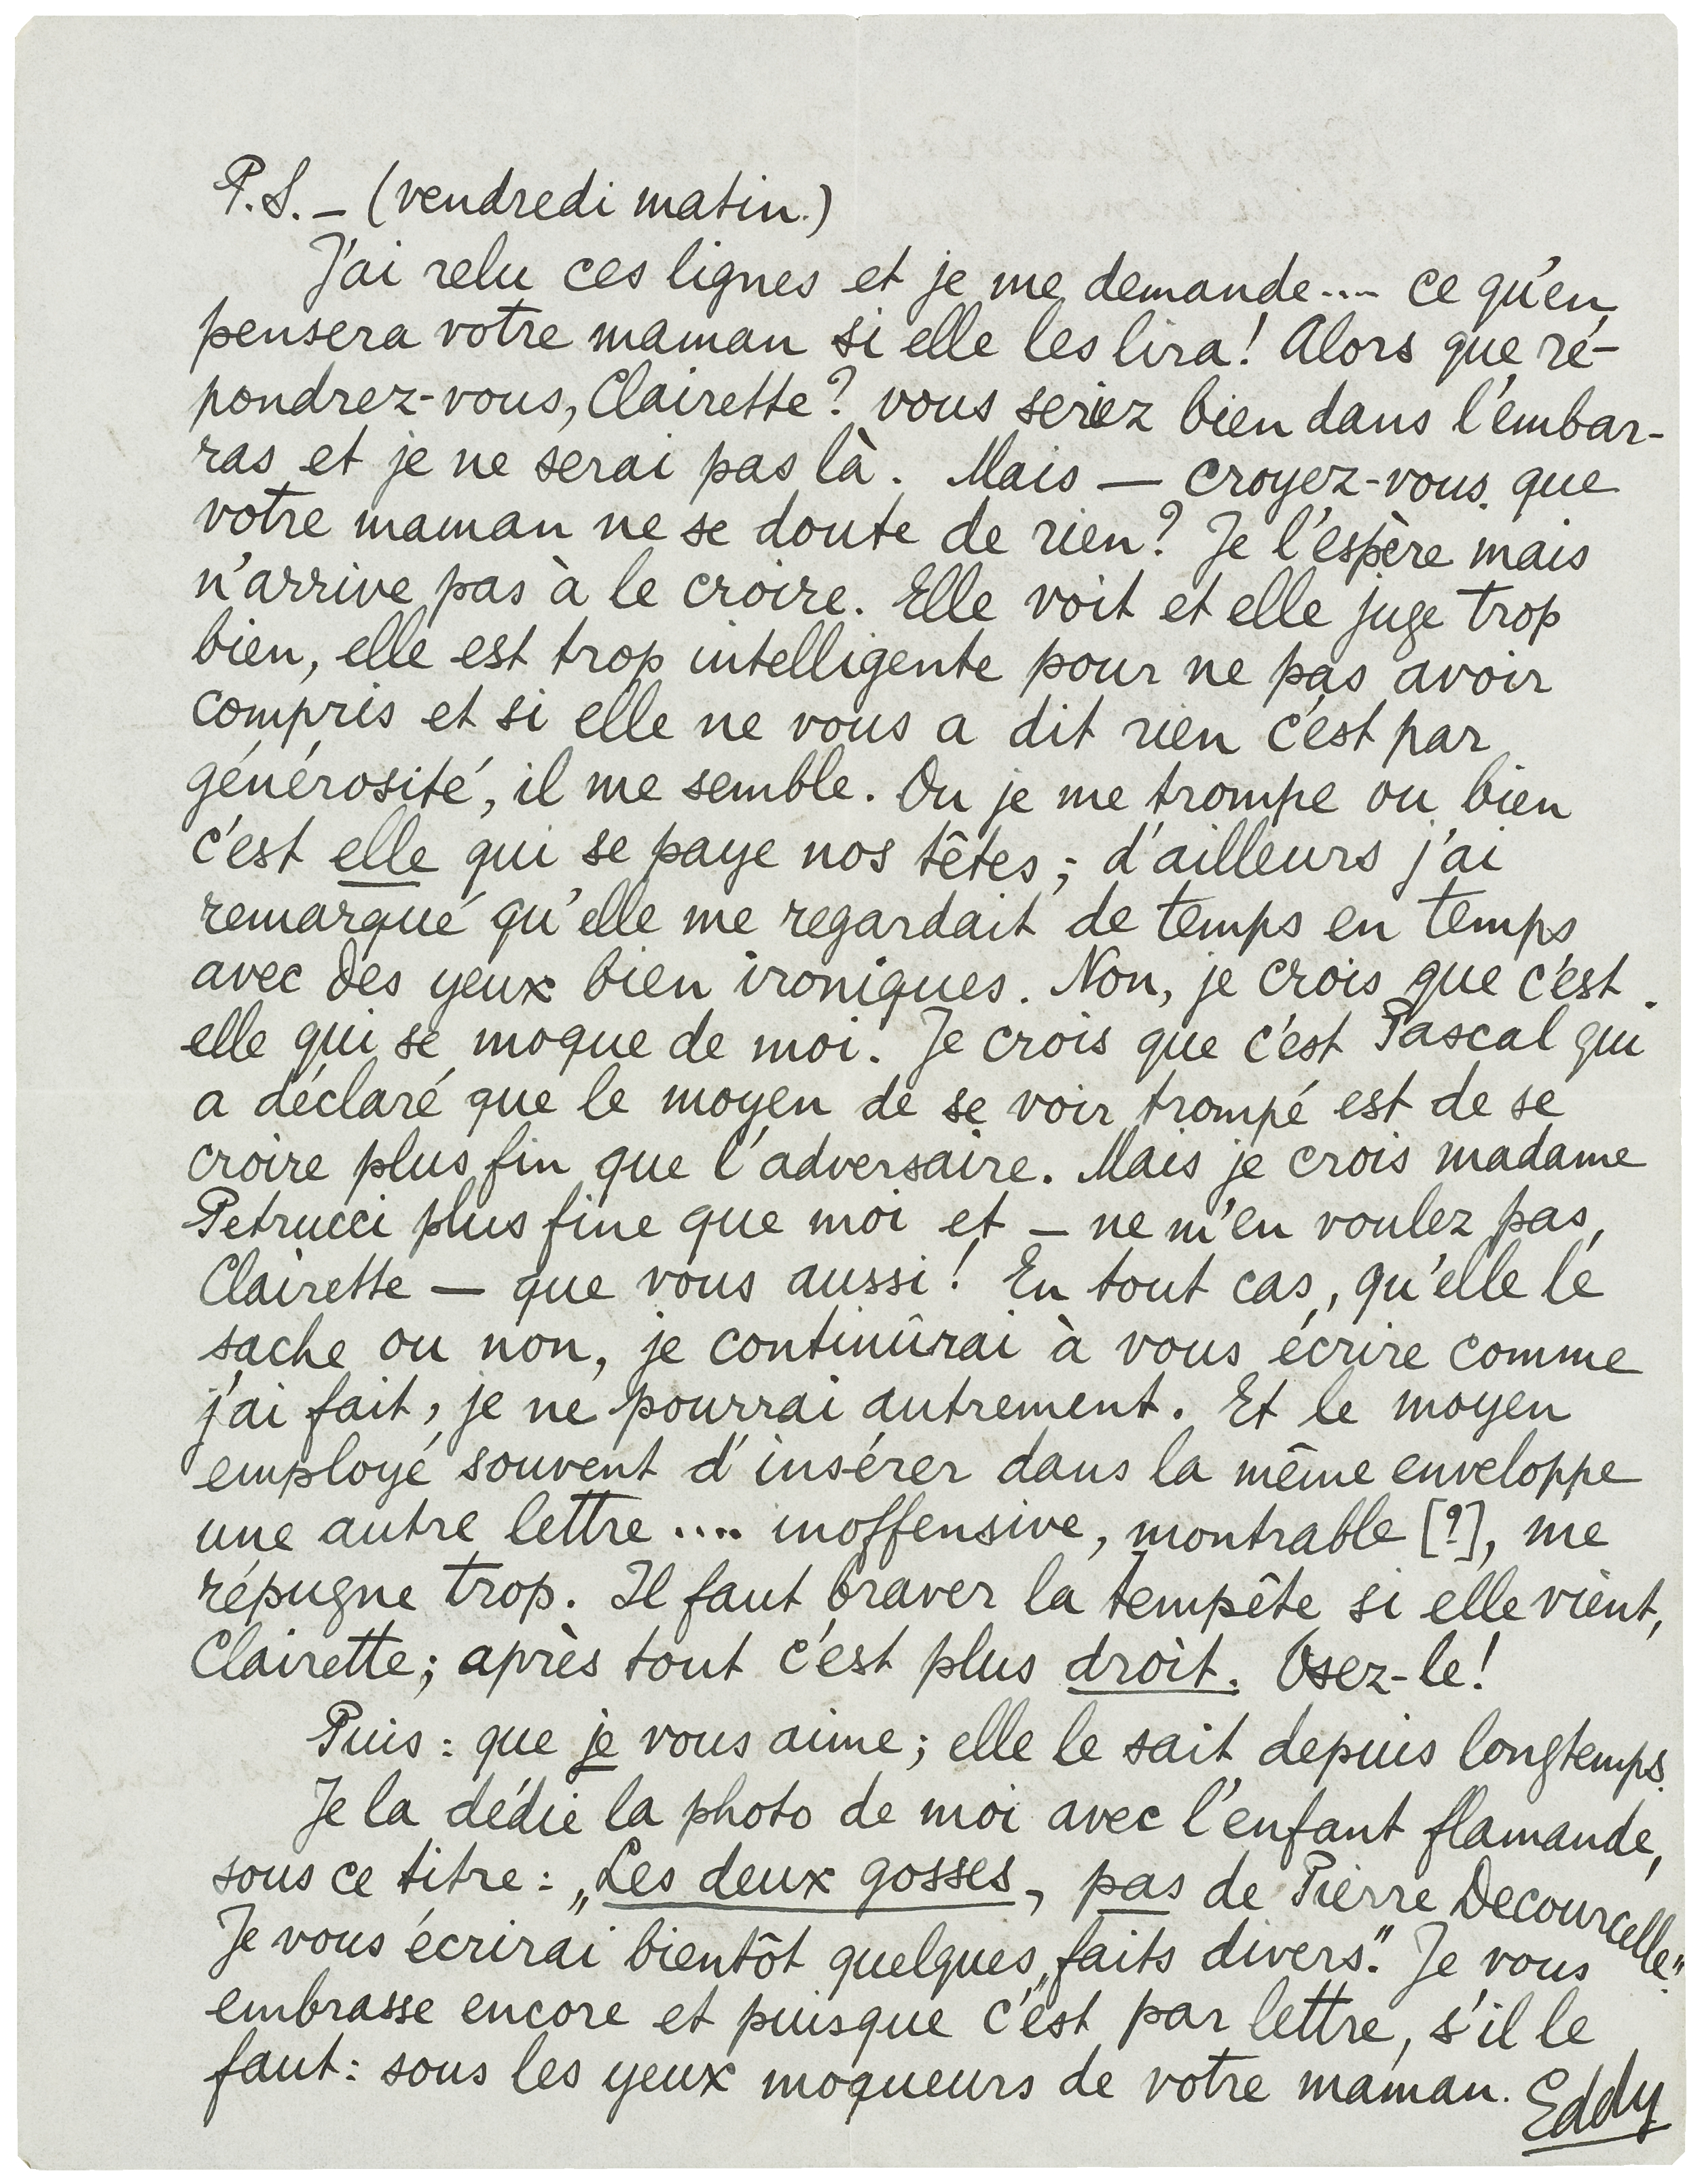 P.S. – (vendredi matin.)
J'ai relu ces lignes et je me demande.... ce qu'en
pensera votre maman si elle les lira! Alors que ré-
pondrez-vous, Clairette? vous seriez bien dans l'embar-
ras et je ne serai pas là. Mais — croyez-vous que
votre maman ne se doute de rien? Je l'espère mais
n'arrive pas à le croire. Elle voit et elle juge trop
bien, elle est trop intelligente pour ne pas avoir
compris et si elle ne vous a dit rien c'est par
générosité, il me semble. Ou je me trompe ou bien
c'est elle qui se paye nos têtes; d'ailleurs j'ai
remarqué qu'elle me regardait de temps en temps
avec des yeux bien ironiques. Non, je crois que c'est
elle qui se moque de moi. Je crois que c'est Pascal qui
a déclaré que le moyen de se voir trompé est de se
croire plus fin que l'adversaire. Mais je crois madame
Petrucci plus fine que moi et – ne m'en voulez pas,
Clairette — que vous aussi! En tout cas, qu'elle le
sache ou non, je continûrai à vous écrire comme
j'ai fait, je ne pourrai autrement. Et le moyen
employé souvent d'insérer dans la même enveloppe
une autre lettre .... inoffensive, montrable [?], me
répugne trop. Il faut braver la tempête si elle vient,
Clairette; après tout c'est plus droit. Osez-le!
Puis: que je vous aime; elle le sait depuis longtemps.
Je la dédie la photo de moi avec l'enfant flamande,
sous ce titre: „Les deux gosses, pas de Pierre Decourcelle".
Je vous écrirai bientôt quelques „faits divers". Je vous
embrasse encore et puisque c'est par lettre, s'il le
faut: sous les yeux moqueurs de votre maman. Eddy